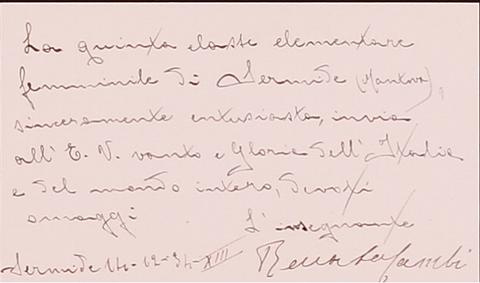 La quinta classe elementare
femminile di Sermide (Mantova),
sinceramente entusiasta, invia
all' E. V. vanto e Gloria dell' Italia
e del mondo intero, devoti
omaggi
L' insegnante
Sermide 14-12-34-XIII